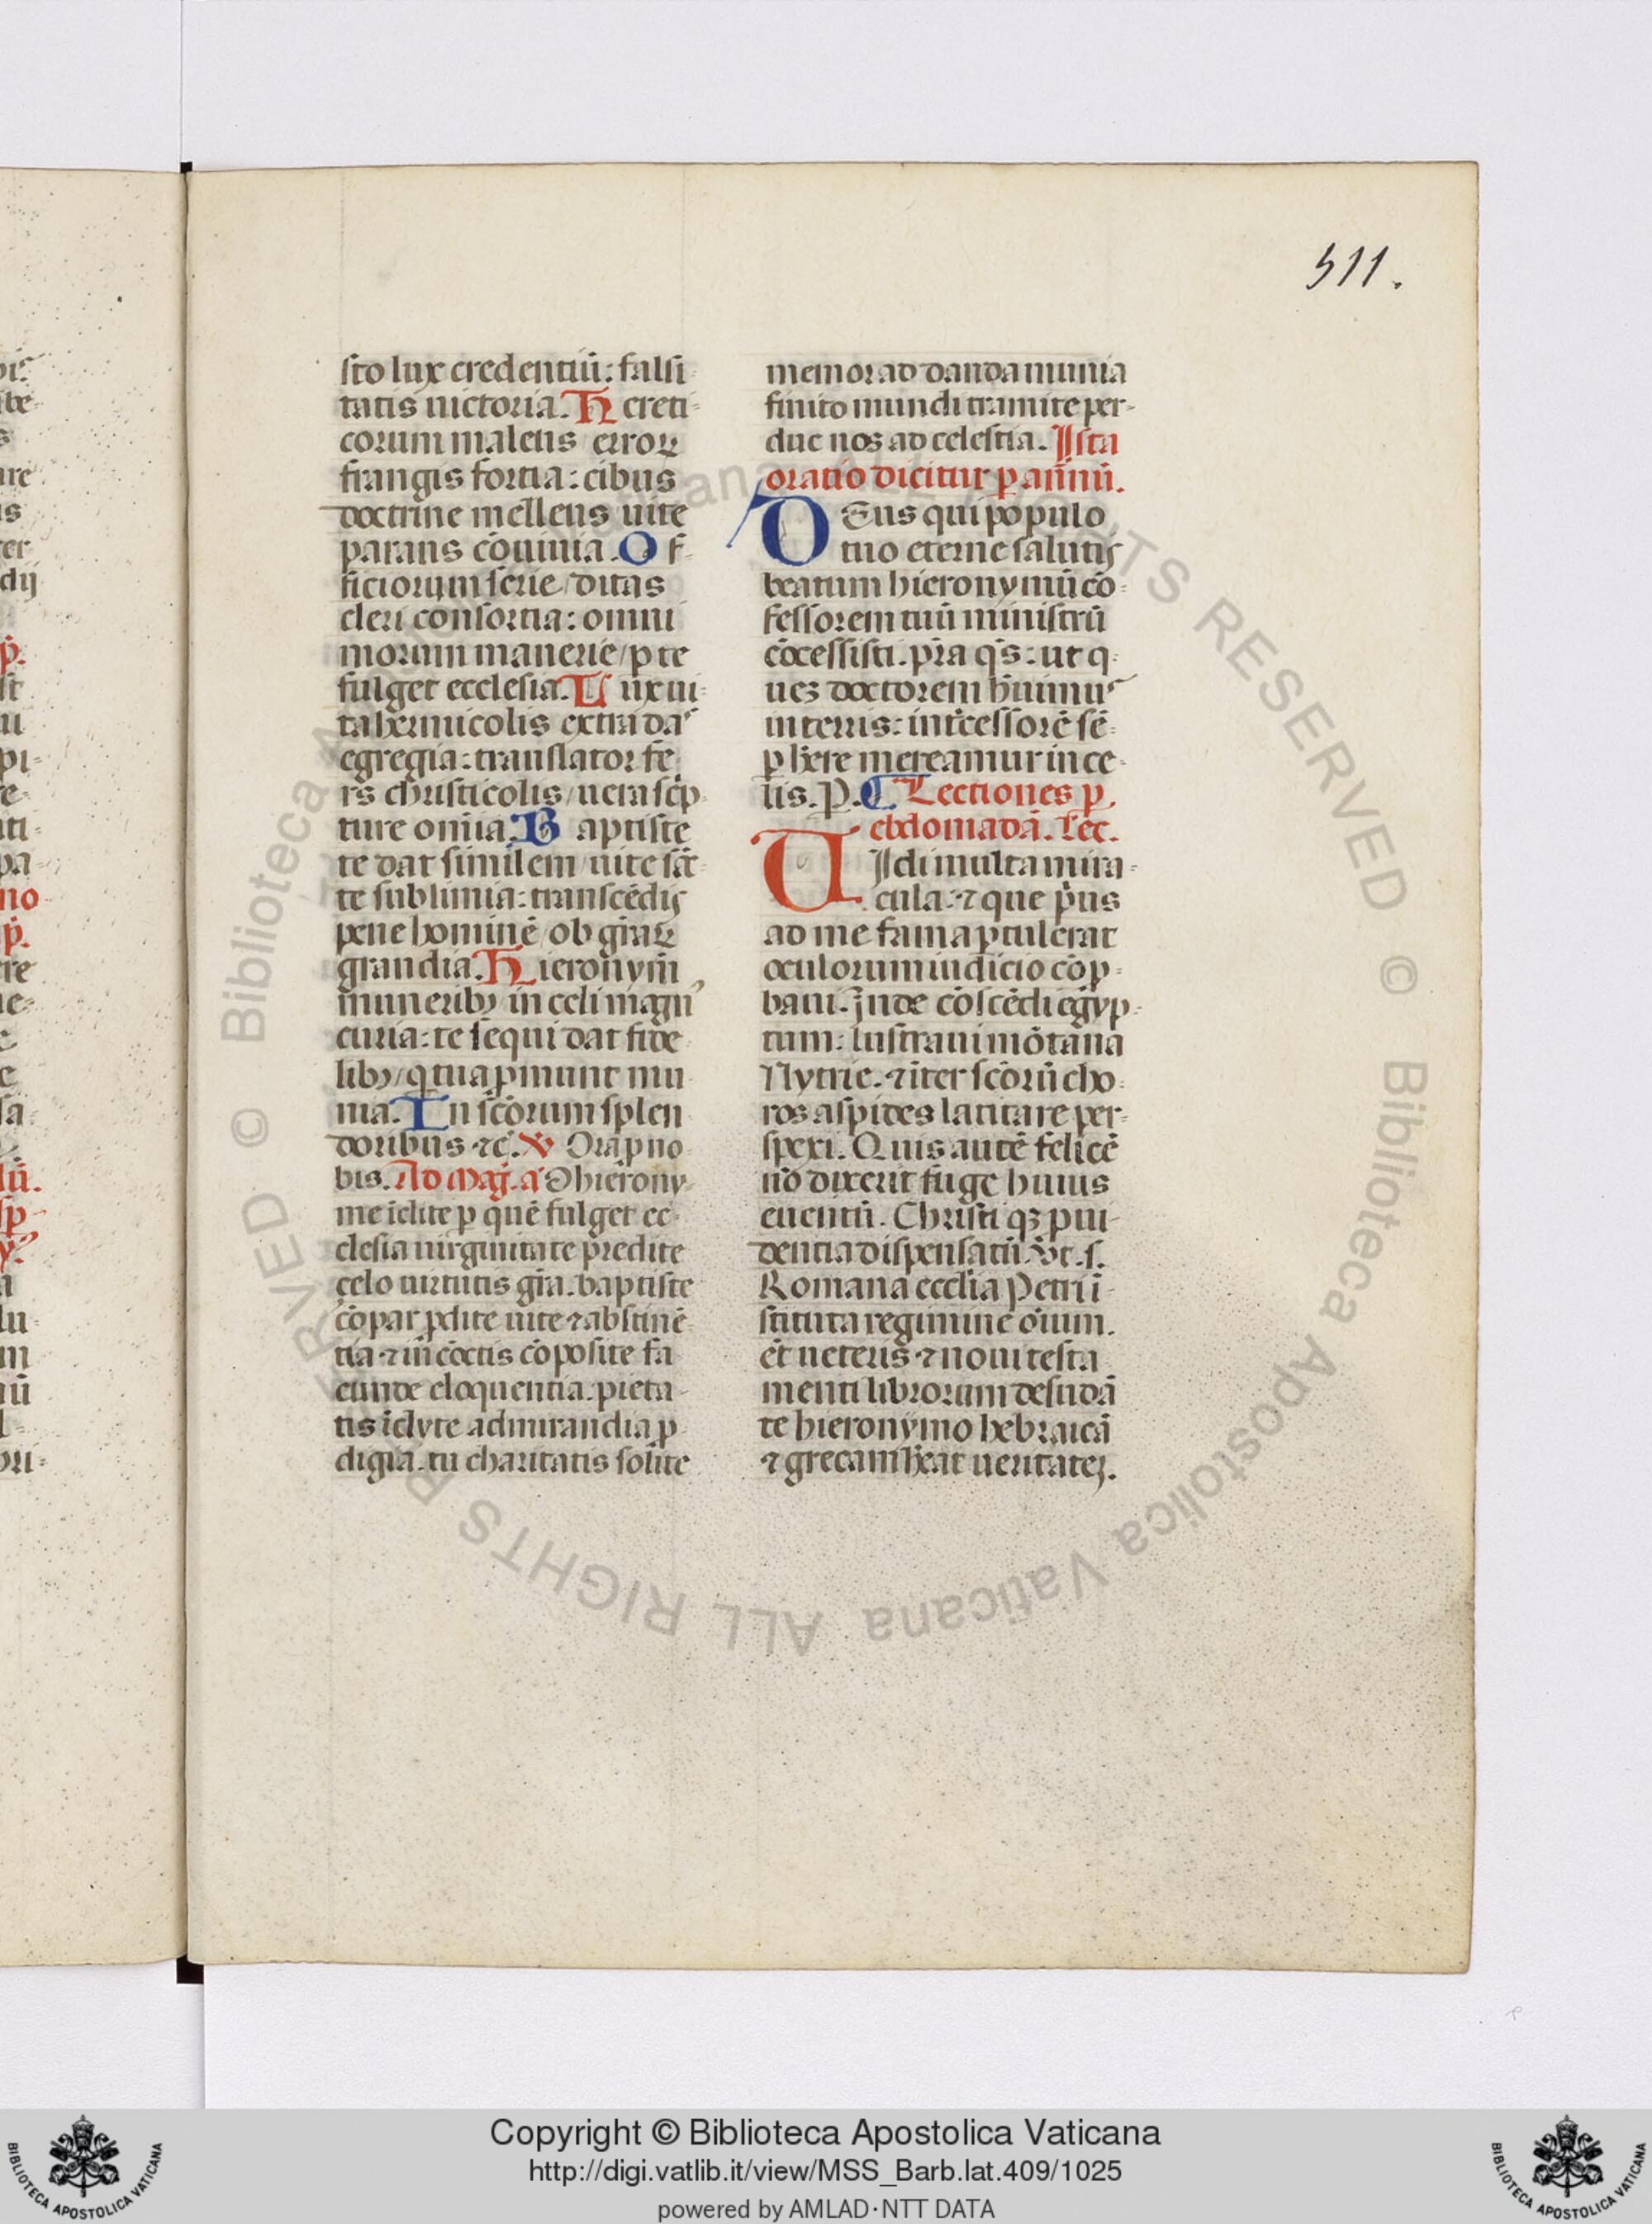 511.
sto lux credentiū: falsi
tatis uictoria. Hereti
corum maleus erroꝝ
frangis fortia: cibus
doctrine melleus uite
parans cōuiuia. Of
ficiorum serie ditas
cleri consortia: omni
morum manerie/ p te
fulget ecclesia. Lux ui
ta heremicolis extra da
egregia: translator fe
rs christicolis/ uera scrip
ture om̄ia. Baptiste
te dat similem/ uite sāc
te sublimia: transcēdis
pene hominē/ ob gr̄aꝝ
grandia. Hieronym̄
muneribꝫ in celi magn
curia: te sequi dat fide
libꝫ/ q tua ꝓmunt mu
nia. In scōrum splen
doribus ⁊c̄. ℣ Ora p no
bis. Ad Mag. a O hierony
me īclite p quē fulget ec
clesia uirginitate predite
celo uirtutis gr̄a. baptiste
cōpar p̄dite uite ⁊ abstinē
tia ⁊ in cōctis cōposite fa
cunde eloquentia. pieta
tis īclyte admirandia p
digia. tu charitatis solite
memor ad danda munia
finito mundi tramite per
duc nos ad celestia. Ista
oratio dicitur p annū.
DEus qui populo
tuo eterne salutis
beatum hieronymū cō
fessorem tuū ministrū
cōcessisti. pr̄a qs̄: ut q
uez doctorem h̄uimus
in terris: int̄cessorē sē
p h̄ere mereamur in ce
lis. P. ¶ Lectiones p
ebdomadā. Lec.
UIdi multa mira
cula: ⁊ que prius
ad me fama ptulerat
oculorum iudicio cōp
baui. Inde cōscēdi egyp
tum: lustraui mōtana
Nytrie. ⁊ īter scōrū cho
ros aspides latitare per
spexi. Quis autē felicē
nō dixerit fuge huius
euentū. Christi qꝫ pui
dentia dispensatū. Vt. s.
Romana ecclīa Petri ī
stituta regimine oīum.
et ueteris ⁊ noui testa
menti librorum desudā
te hieronymo hebraicā
⁊ grecam h̄eat ueritatez.
Copyright © Biblioteca Apostolica Vaticana
http://digi.vatlib.it/view/MSS_Barb.lat.409/1025
powered by AMLAD·NTT DATA
BIBLIOTECA APOSTOLICA VATICANA
BIBLIOTECA APOSTOLICA VATICANA